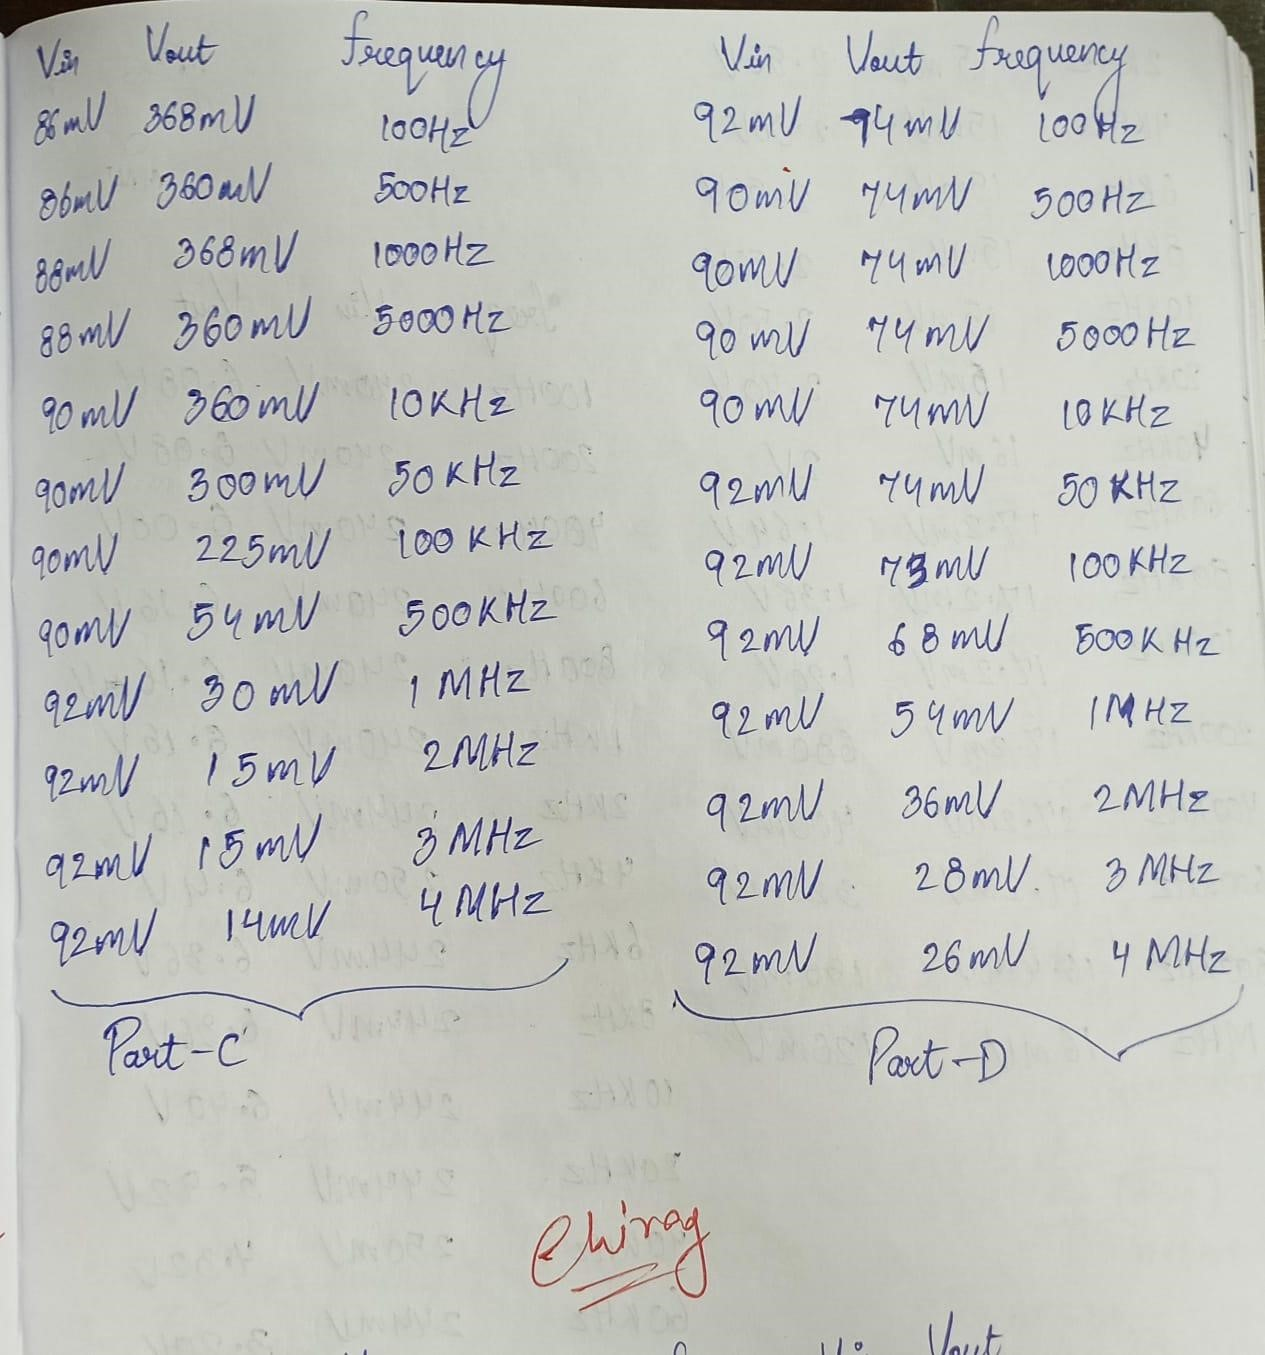 Vin Vout frequency
86mV 368mV 100Hz
86mV 360mV 500Hz
88mV 368mV 1000Hz
88mV 360mV 5000Hz
90mV 360mV 10KHz
90mV 300mV 50KHz
90mV 225mV 100KHz
90mV 54mV 500KHz
92mV 30mV 1MHz
92mV 15mV 2MHz
92mV 15mV 3MHz
92mV 14mV 4MHz
Part-C
Vin Vout frequency
92mV 74mV 100Hz
90mV 74mV 500Hz
90mV 74mV 1000Hz
90mV 74mV 5000Hz
90mV 74mV 10KHz
92mV 74mV 50KHz
92mV 73mV 100KHz
92mV 68mV 500KHz
92mV 54mV 1MHz
92mV 36mV 2MHz
92mV 28mV 3MHz
92mV 26mV 4MHz
Part-D
Chirag
Vout